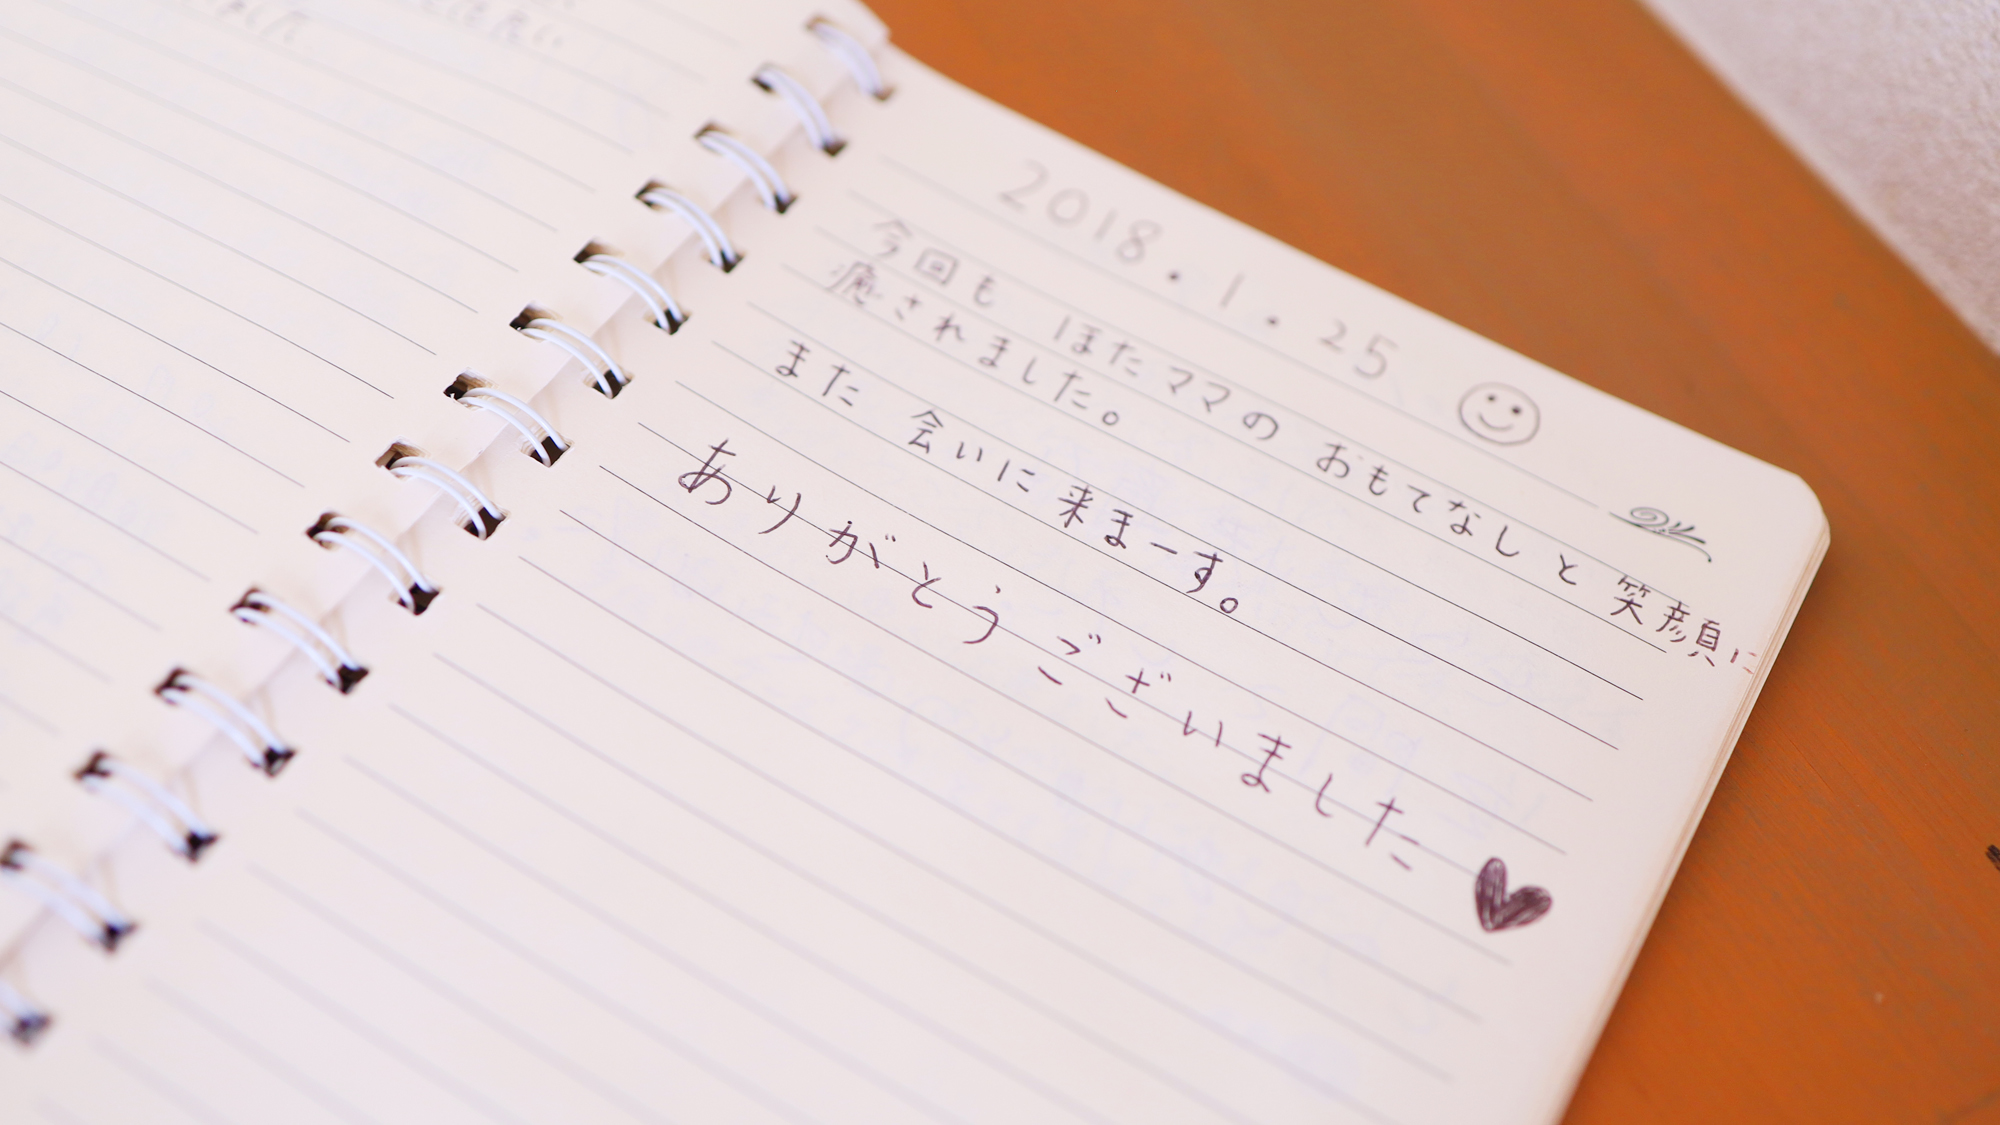 2018.1.25
今回も ほたママの おもてなしと 笑顔に
癒されました。
また 会いに 来まーす。
ありがとうございました